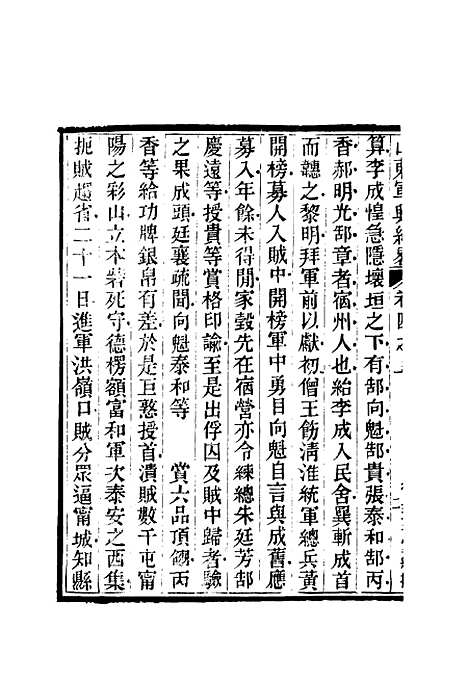 山東軍興紀畧 卷四之
算李成惶急隱壞垣之下有郜向魁郜貴張泰和郜丙
香郝明光郜章者宿州人也紿李成入民舍巽斬成首
而韢之黎明拜軍前以獻初僧王飭淸淮統軍總兵黃
開榜募人入賊中開榜軍中勇目向魁自言與成舊應
募入年餘未得閒家㲄先在宿營亦令練總朱廷芳郜
慶遠等授貴等賞格印諭至是出俘囚及賊中歸者驗
之果成頭廷襄疏聞向魁泰和等 賞六品頂翎丙
香等給功牌銀帛有差於是巨憝授首潰賊數千屯甯
陽之彩山立木砦死守德楞額富和軍次泰安之西集
扼賊趨省二十一日進軍洪嶺口賊分眾逼甯城知縣